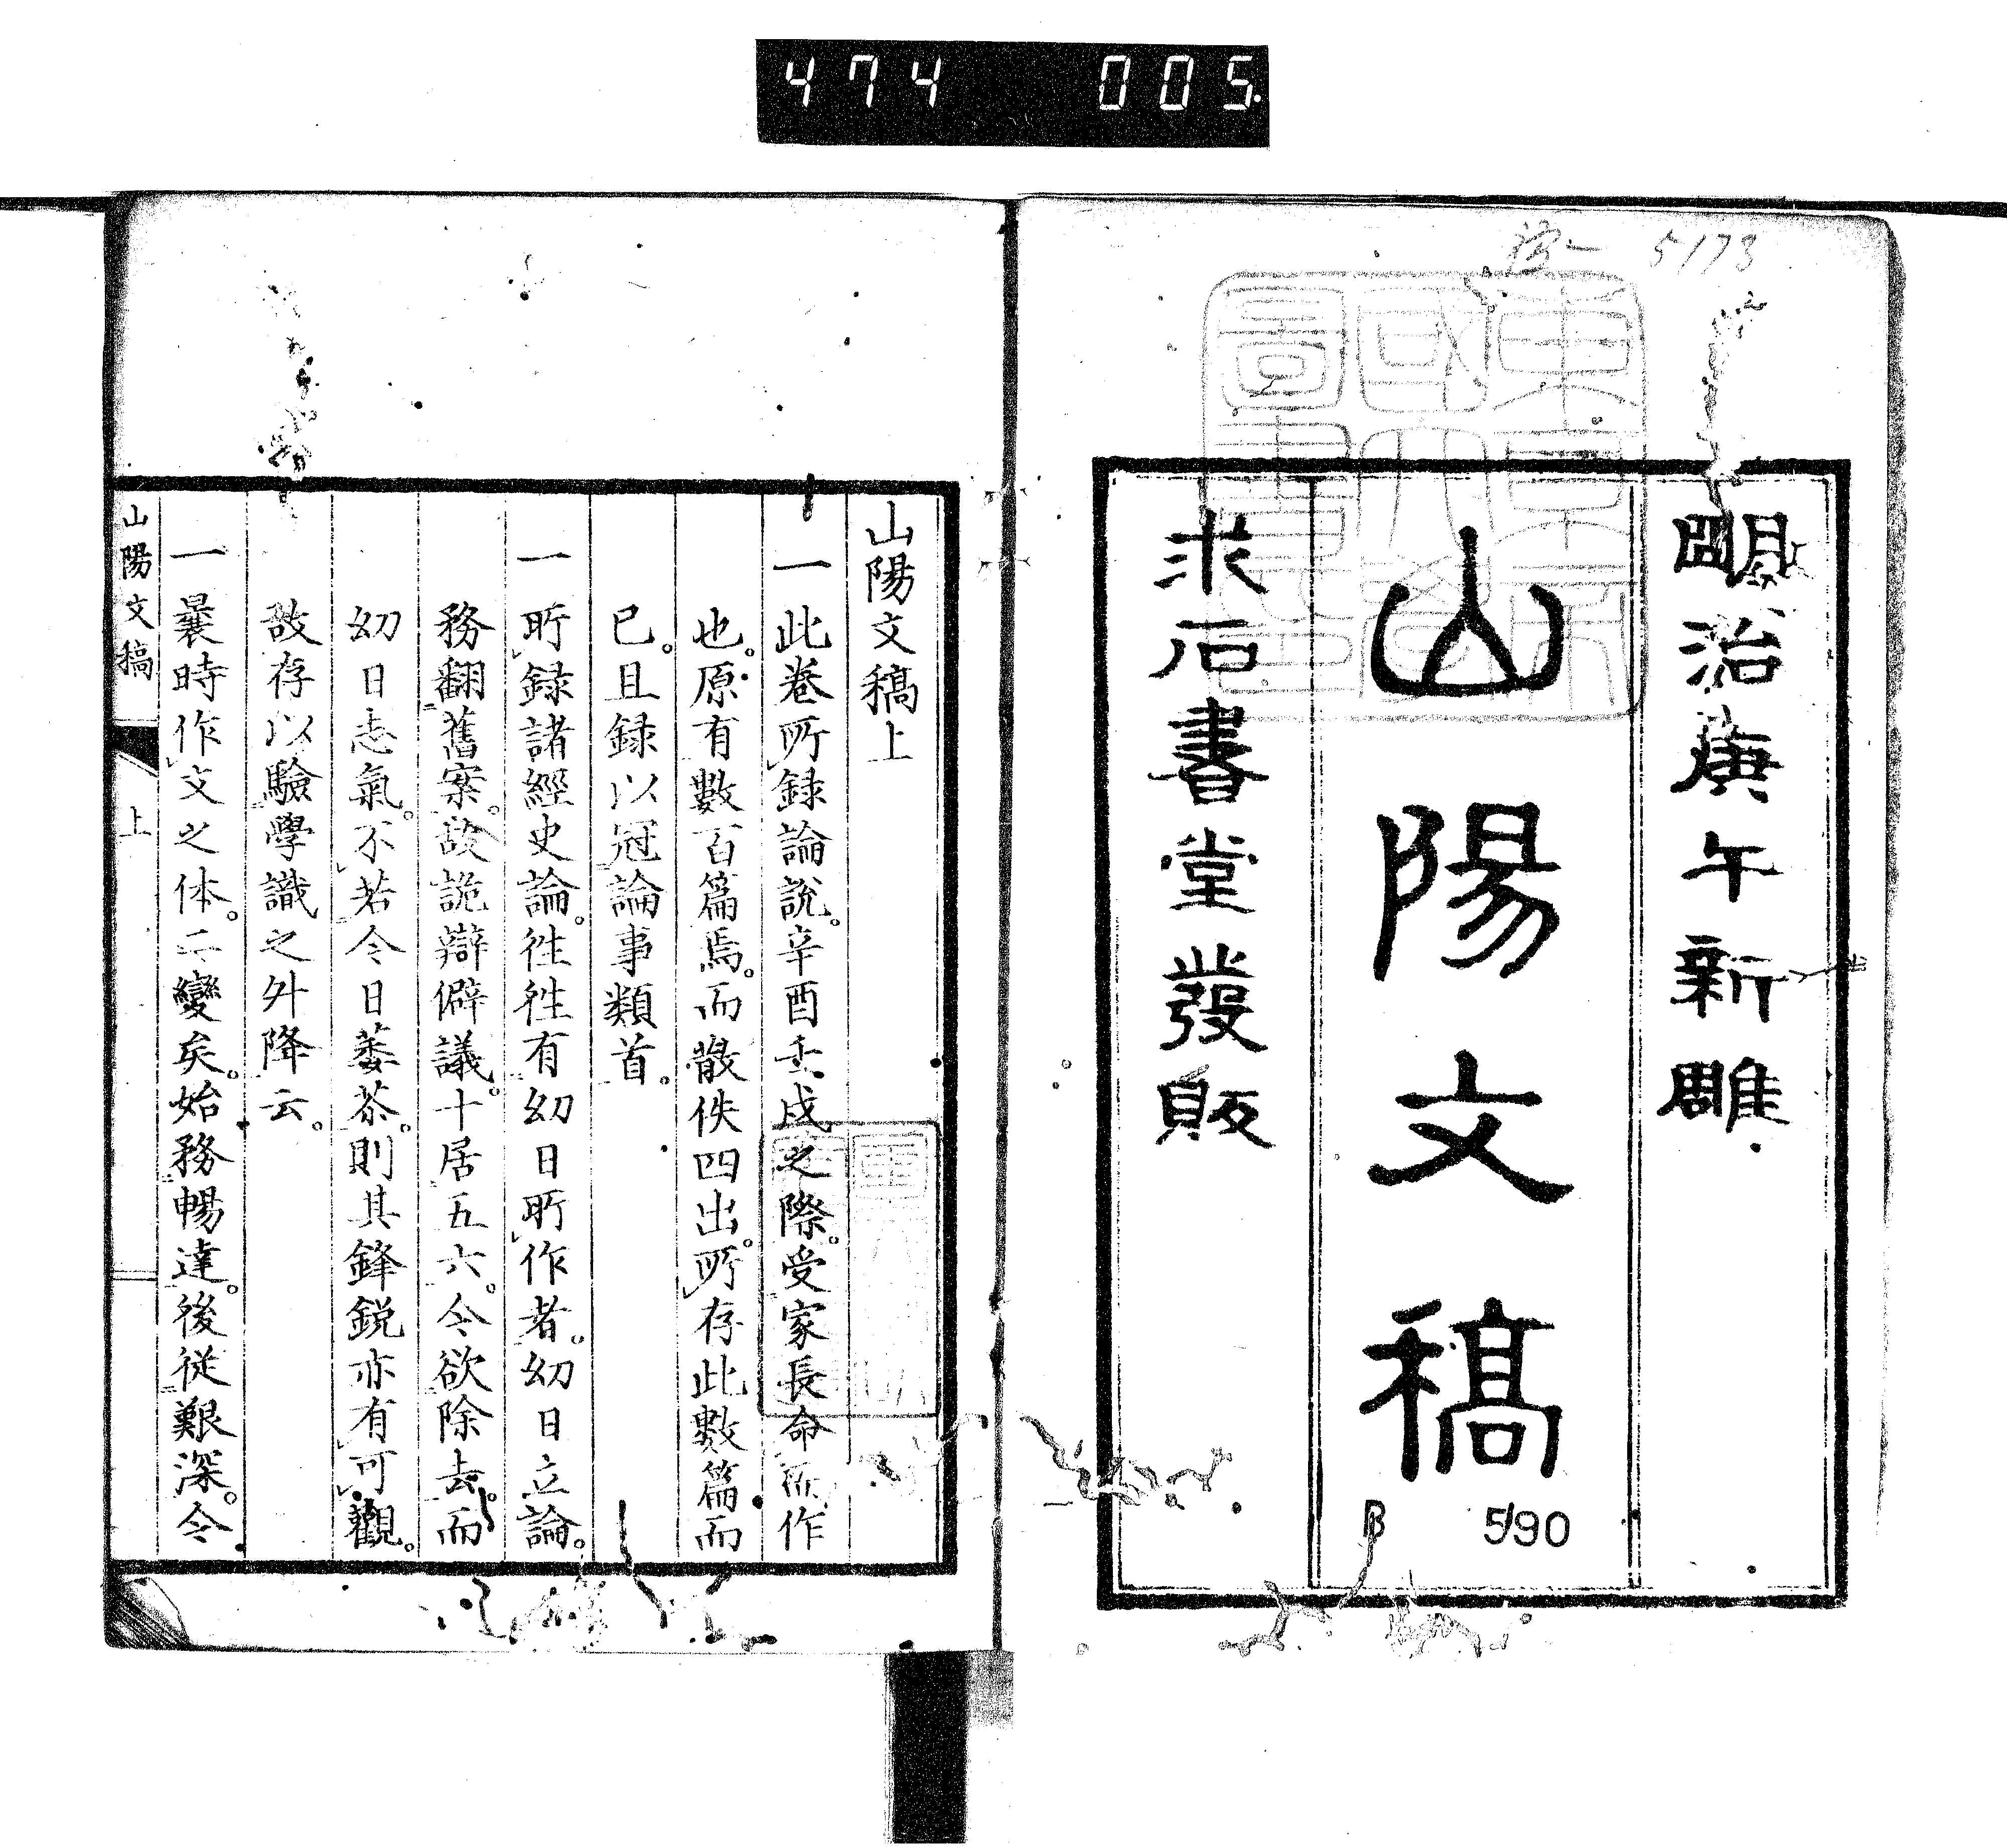 474 005
5173
明治庚午新雕
山陽文稿
求石書堂發販
B 5190
山陽文稿上
一此卷所録論説。辛酉壬戌之際。受家長命所作
也。原有數百篇焉。而散佚四出。所存此數篇而
已。且録以冠論事類首。
一所録諸經史論。徃徃有幼日所作者。幼日立論。
務翻舊案。故詭辯僻議。十居五六。今欲除去。而
幼日志氣。不若今日萎苶。則其鋒鋭亦有可觀。
故存以驗學識之外降云。
一曩時作文之体。二變矣。始務暢達。後従艱深。今
山陽文稿 上